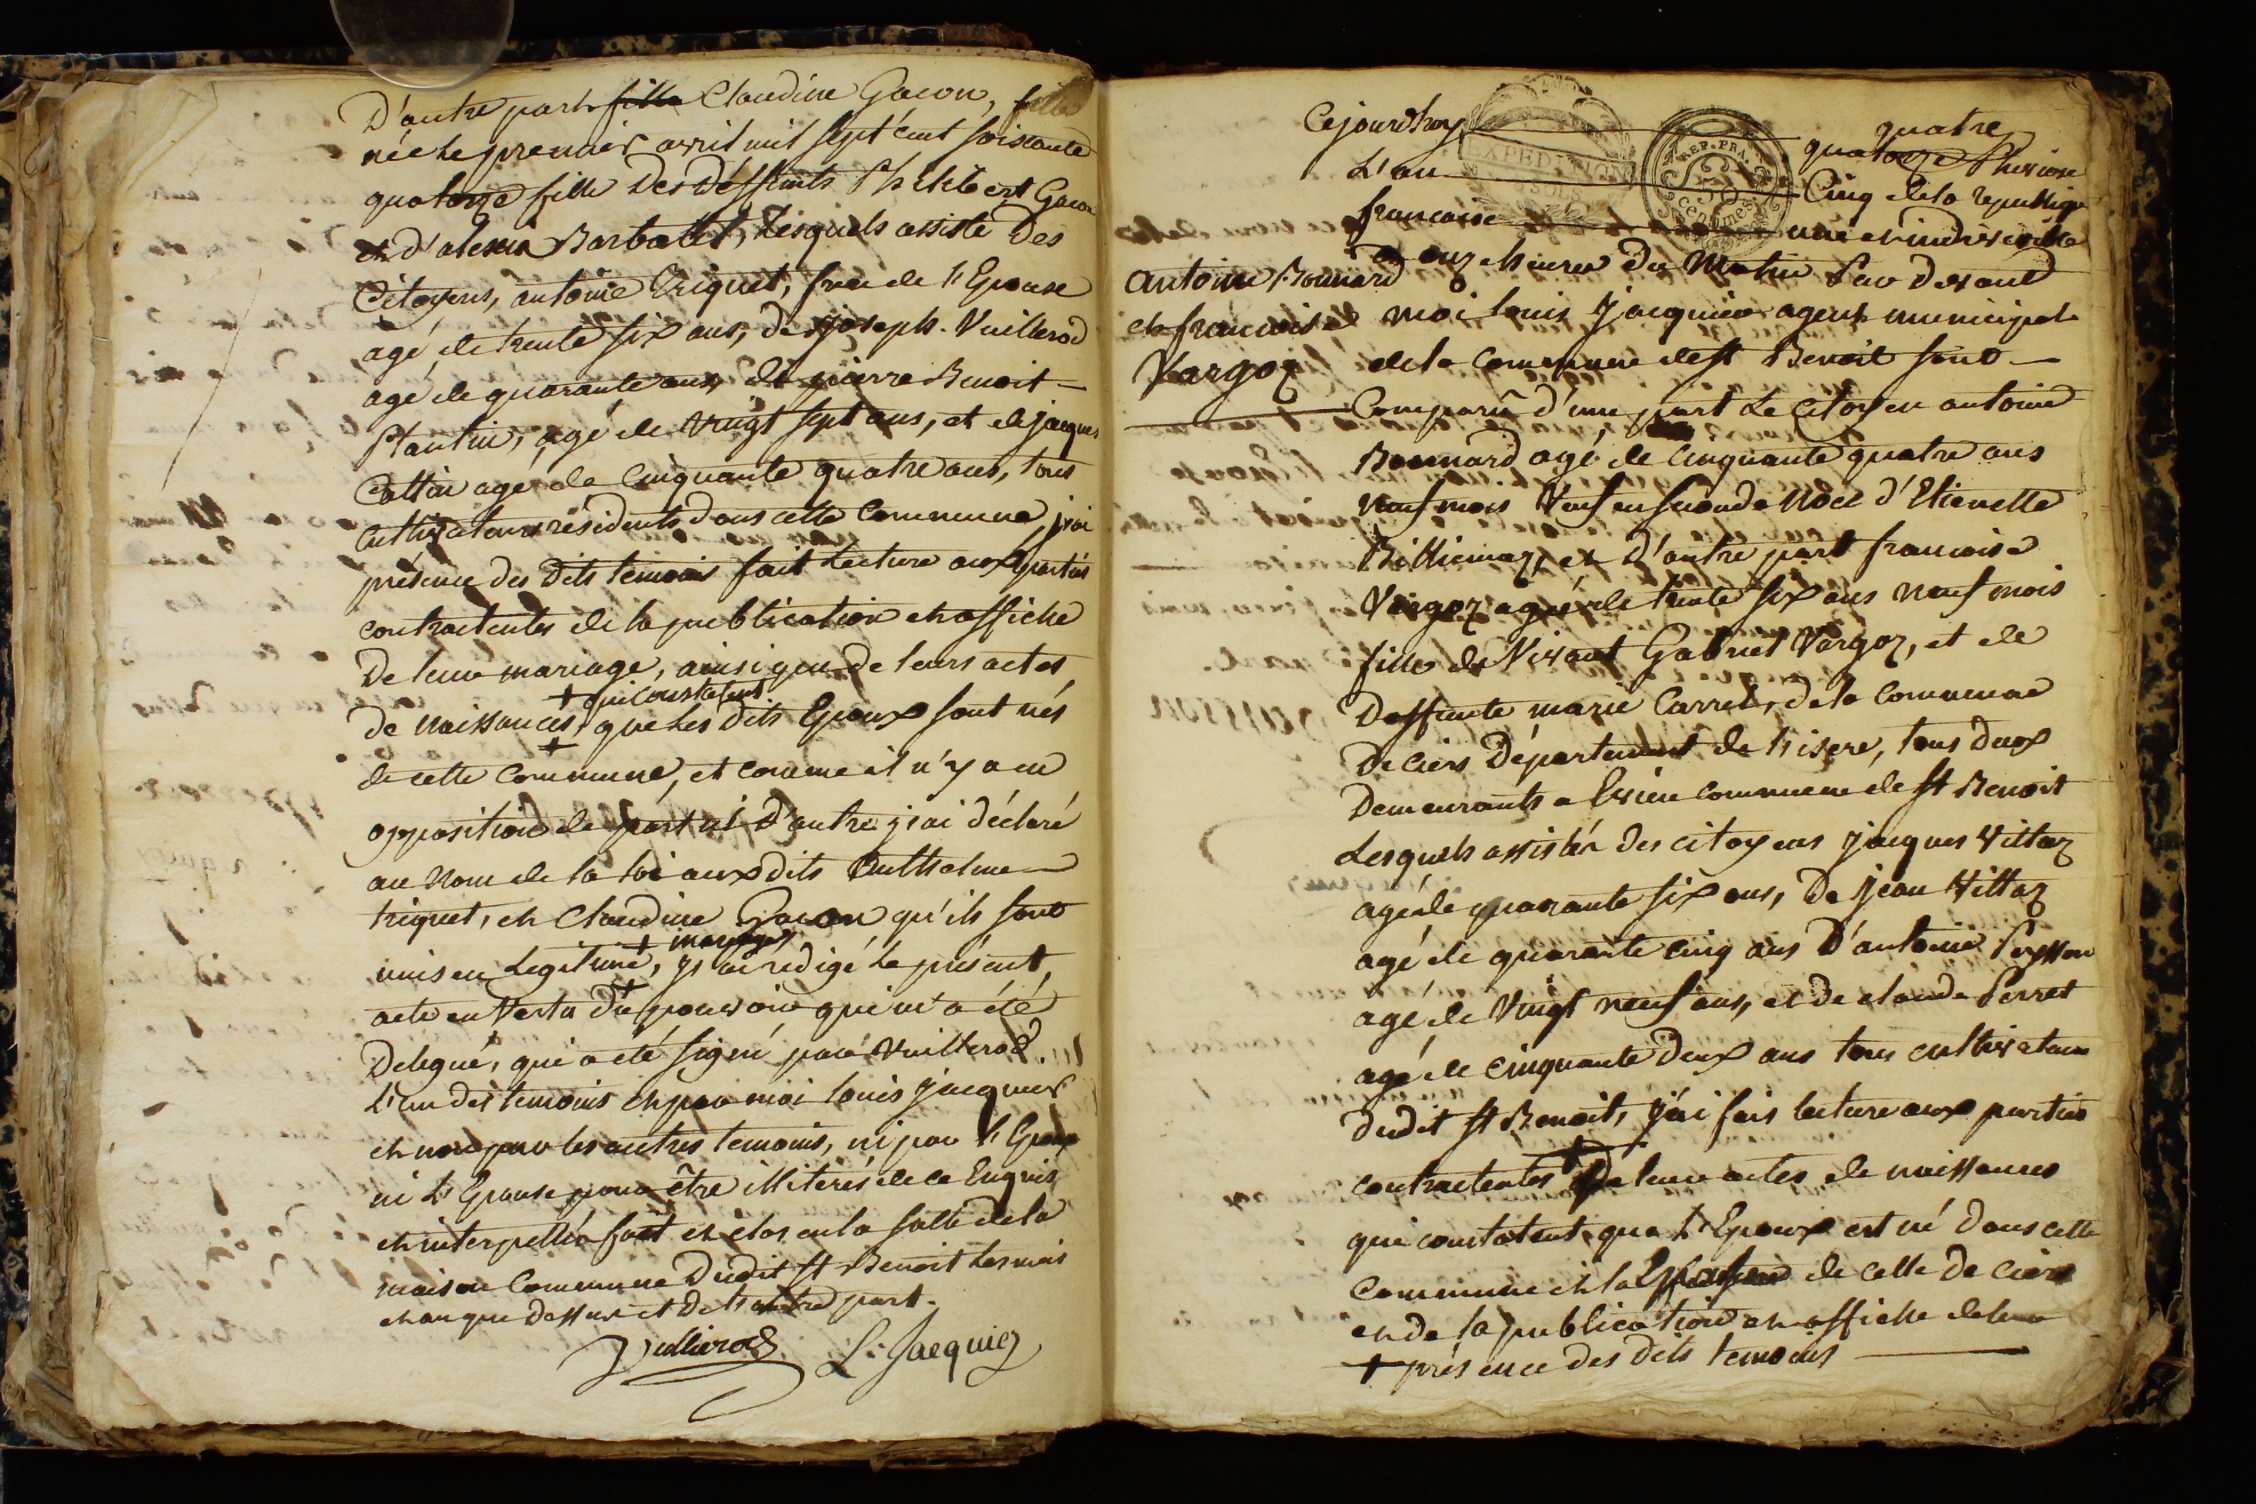 D'autre part fille Claudine Gacon, fille
née le premier avril mil sept cent soixante
quatorze fille des déffunts Philibert Gacon
et d'alexia Barbollet, lesquels assisté des
Citoyens, antoine Triquet, frere de l'Epouse
agé de trente six ans, de joseph Vuillerod
agé de quarante ans, de pierre Benoit
Plantin, agé de vingt sept ans, et de jacques
Cottin agé de Cinquante quatre ans, tous
Cultivateurs résidents dans cette Commune, j'ai
présence des dits temoins fait lecture aux parties
contractentes de la publication et affiche
De leur mariage, ainsi que de leurs actes
+ qui constatent
de naissances, que les dits Epoux sont nés
+
de cette Commune, et comme il n'y a eu
opposition de part ni d'autre j'ai déclaré
au nom de la loi aux dits Enthelme
triquet, et Claudine Gacon qu'ils sont
+ mariage
unis en Legitime, j'ai redigé le présent
+
acte en vertu du pouvoir qui m'a été
Delegué, qui a été signé par Vuillerod
L'un des temoins et par moi louis jacquier
et non par les autres temoins, ni par l'Epoux
ni L'Epouse pour être illiterés de ce Enquis
et interpellés fait et clos en la salle de la
maison Commune Dudit St Benoit les mois
et an que dessus et de l'autre part.
Vullierod L. Jacquier
Cejourd'huy quatre
quatorze Pluviose
L'an Cinq de la republique
francaise une et indivisible
a onze heures du Matin Par devant
antoine Bonnard
et francoise
Vargoz
moi louis Jacquier agent municipal
de la Commune de St Benoit sont
Comparu d'une part Le Citoyen antoine
Bonnard agé de Cinquante quatre ans
neuf mois Veuf en seconde Noce d'Etienette
Billiemaz, et D'autre part francoise
Vargoz agée de trente six ans neuf mois
fille de Vivant Gabriel Vargoz, et de
Deffunte marie Carrel, de la Commune
De Ciers Département de l'isere, tous deux
Demeurants a Evieu commune de St Benoit
Lesquels assistés des citoyens jacques Vittoz
agé de quarante six ans, De jean Vittoz
agé de quarante cinq ans D'antoine Peysson
agé de Vingt neuf ans, et de claude Perret
agé de cinquante Deux ans tous cultivateurs
dudit St Benoit, j'ai fais lecture aux parties
+
contractentes De leur actes de naissances
qui constatent que L'Epoux est né Dans cette
Commune et la Epouse de celle de Ciers
et de la publication et affiche de leur
+ présence des dits temoins
EXPEDITION
REP. FRA.
50
centimes